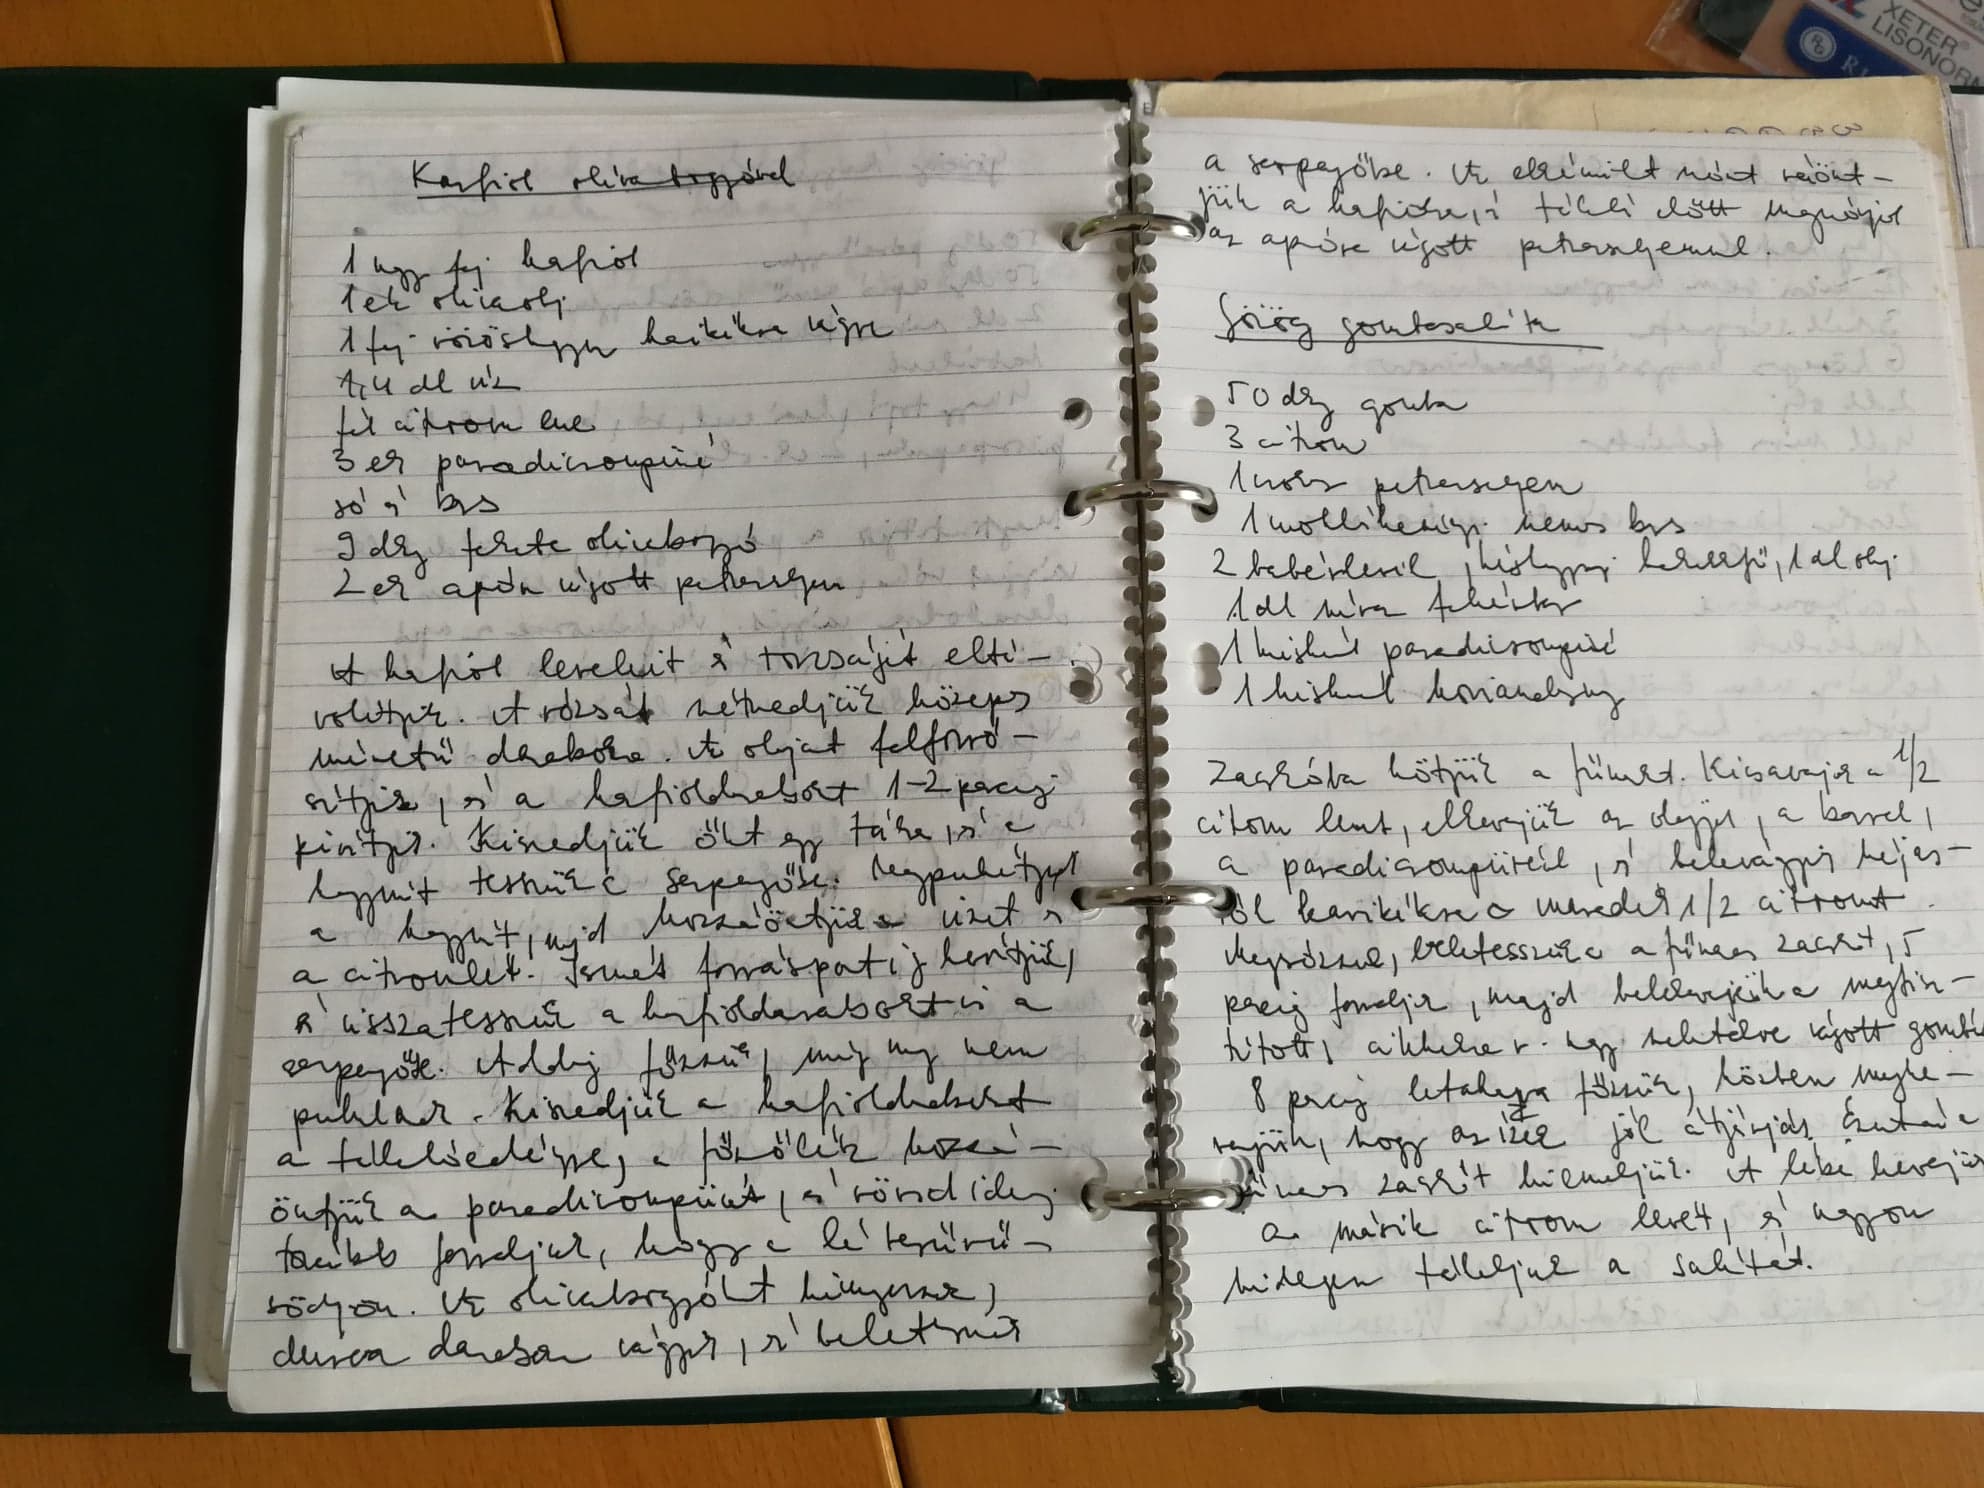 Karfiol olívabogyóval
1 nagy fej karfiol
1 ek olívaolaj
1 fej vöröshagyma karikákra vágva
1,4 dl víz
fél citrom leve
3 ek paradicsompüré
só és bors
9 dkg fekete olívabogyó
2 ek apróra vágott petrezselyem
A karfiol leveleit és torzsáját eltá-
volítjuk. A rózsát szétszedjük közepes
méretű darabokra. Az olajat felforró-
sítjuk, és a karfioldarabokat 1-2 percig
pirítjuk. Kiszedjük őket egy tálra, és a
hagymát tesszük a serpenyőbe. Megpuhítjuk
a hagymát, majd hozzáöntjük a vizet és
a citromlét. Ismét forráspontig hevítjük,
és visszatesszük a karfioldarabokat is a
serpenyőbe. Addig főzzük, míg meg nem
puhulnak. Kiszedjük a karfioldarabokat
a tálalóedénybe, a főzőléhez hozzá-
öntjük a paradicsompürét, és rövid ideig
tovább forraljuk, hogy a lé besűrű-
södjön. Az olívabogyókat kimagozzuk,
durva darabokra vágjuk, és beletesszük
a serpenyőbe. Az elkészült mártást ráönt-
jük a karfiolra, és tálalás előtt megszórjuk
az apróra vágott petrezselyemmel.
Görög gombasaláta
50 dkg gomba
3 citrom
1 csokor petrezselyem
1 mokkáskanál szemes bors
2 babérlevél, kakukkfű, 1 dl olaj
1 dl száraz fehérbor
1 kiskanál paradicsompüré
1 kiskanál koriandermag
Zacskóba kötjük a fűszert. Kicsavarjuk a 1/2
citrom levét, elkeverjük az olajjal, a borral,
a paradicsompürével, és belevágjuk héjas-
tól karikákra a maradék 1/2 citromot.
Megsózzuk, beletesszük a fűszeres zacskót, 5
percig forraljuk, majd belekeverjük a megtisz-
tított, cikkekre v. nagy szeletekre vágott gombát
8 percig letakarva főzzük, közben megke-
verjük, hogy az ízek jól átjárják. Ezután a
fűszeres zacskót kiemeljük. A lébe keverjük
a másik citrom levét, és nagyon
hidegen tálaljuk a salátát.
XETER
LISONORM